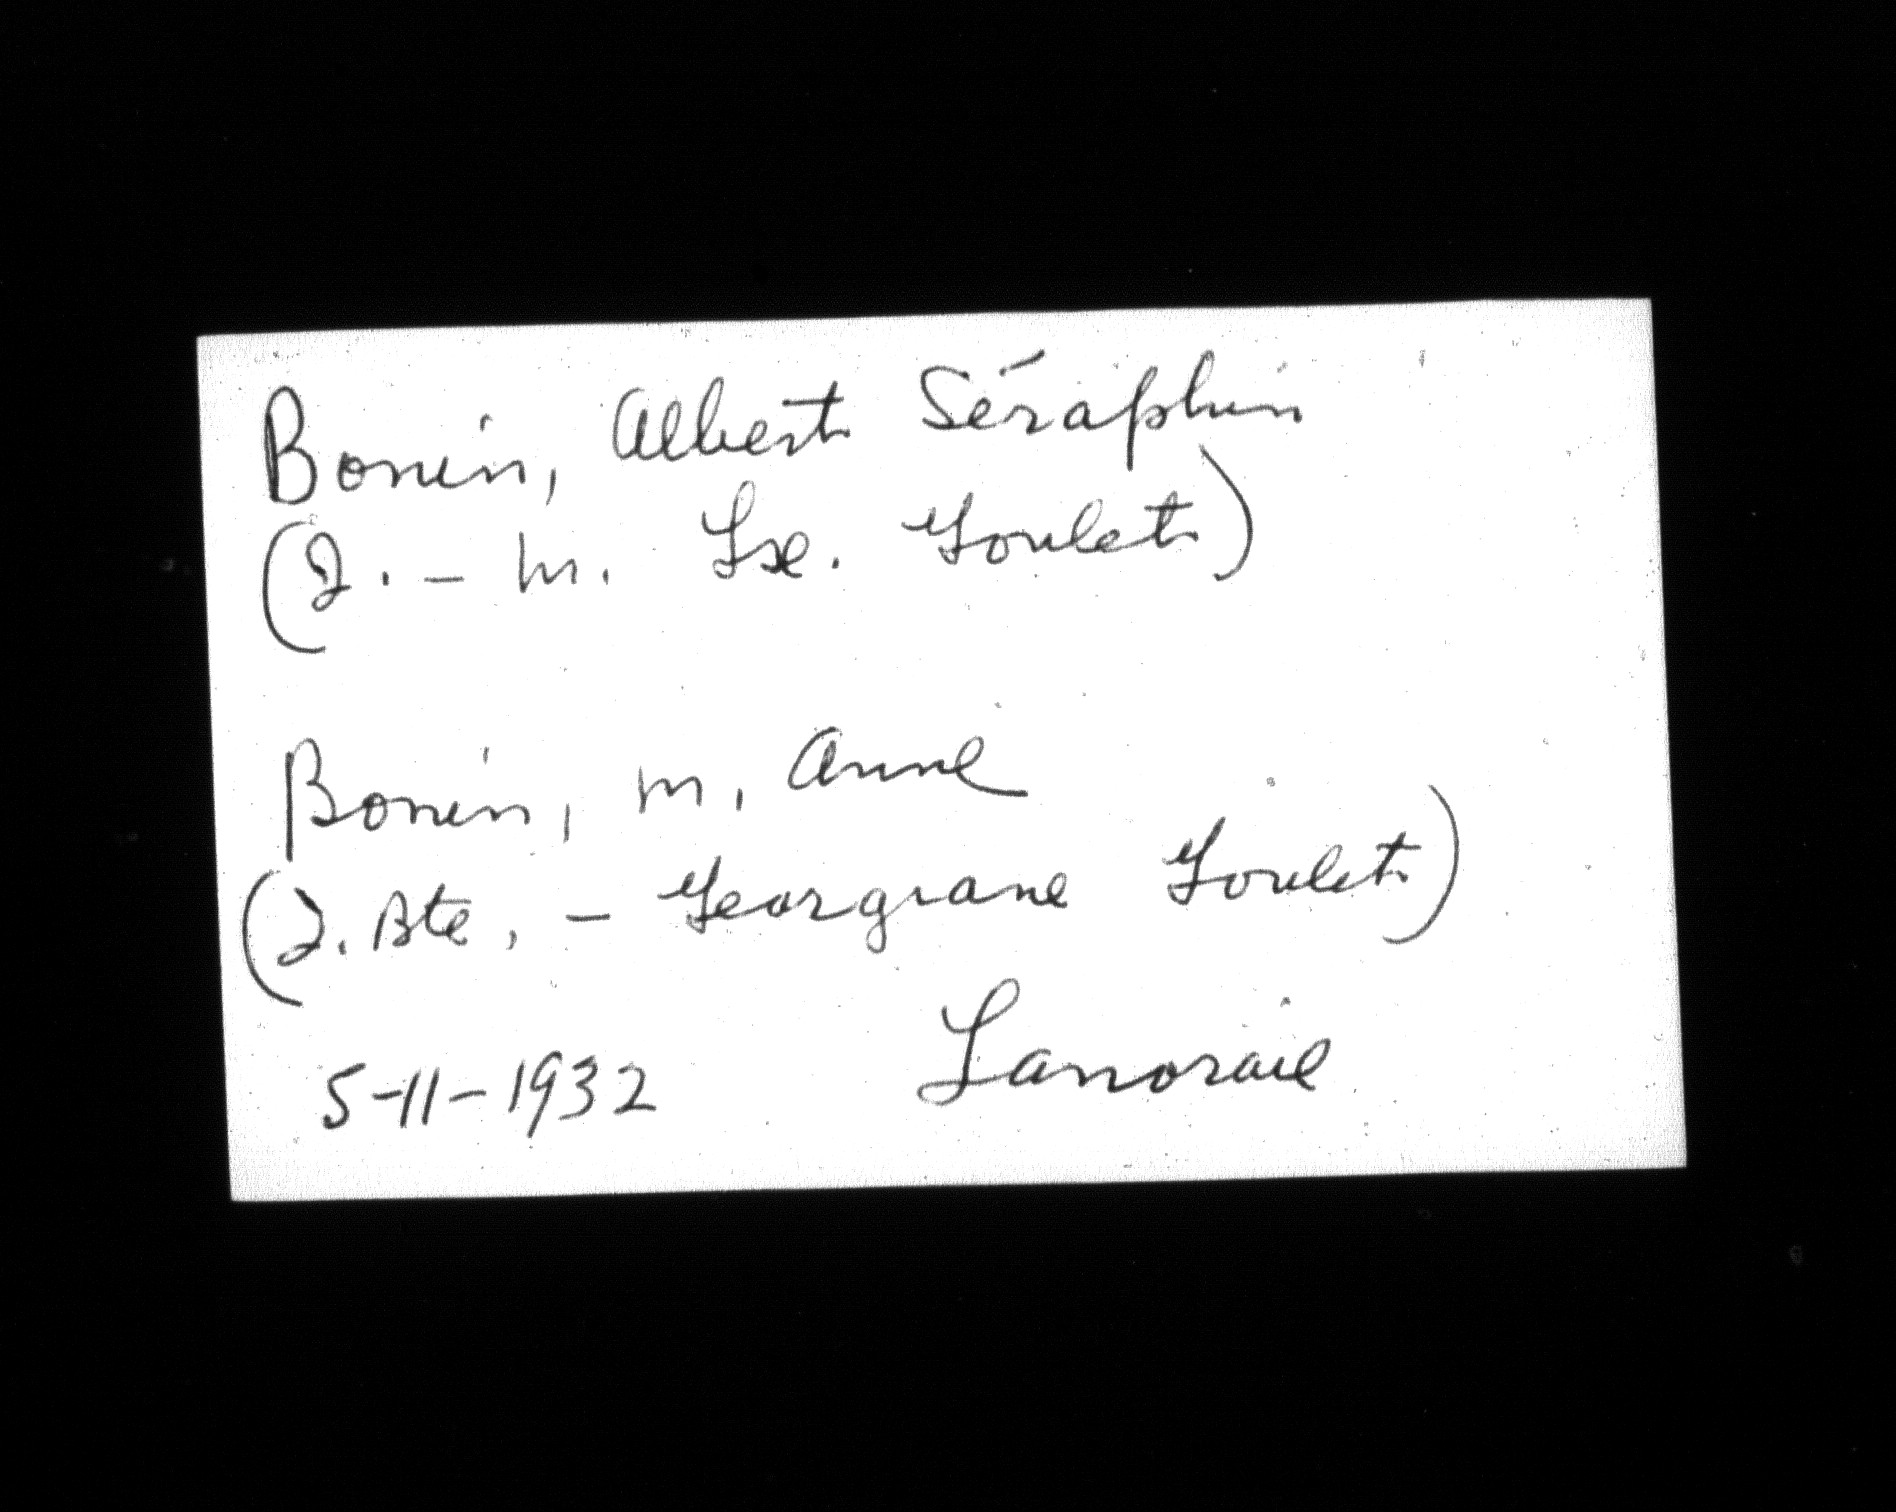 Bonin, Albert Séraphin
(J. - M. Lse. Goulet)
Bonin, M. Anne
(J. Bte, - Georgiane Goulet)
5-11-1932 Lanoraie